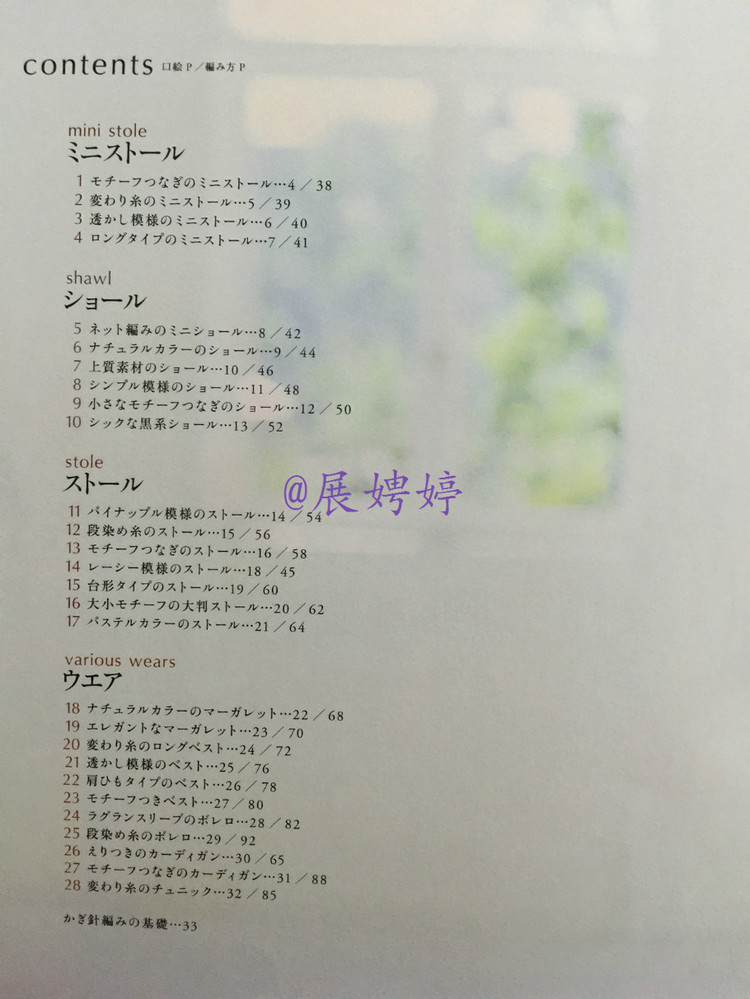 contents 口絵 P／編み方 P
mini stole
ミニストール
1 モチーフつなぎのミニストール…4／38
2 変わり糸のミニストール…5／39
3 透かし模様のミニストール…6／40
4 ロングタイプのミニストール…7／41
shawl
ショール
5 ネット編みのミニショール…8／42
6 ナチュラルカラーのショール…9／44
7 上質素材のショール…10／46
8 シンプル模様のショール…11／48
9 小さなモチーフつなぎのショール…12／50
10 シックな黒系ショール…13／52
stole
ストール
@展娉婷
11 パイナップル模様のストール…14／54
12 段染め糸のストール…15／56
13 モチーフつなぎのストール…16／58
14 レーシー模様のストール…18／45
15 台形タイプのストール…19／60
16 大小モチーフの大判ストール…20／62
17 パステルカラーのストール…21／64
various wears
ウエア
18 ナチュラルカラーのマーガレット…22／68
19 エレガントなマーガレット…23／70
20 変わり糸のロングベスト…24／72
21 透かし模様のベスト…25／76
22 肩ひもタイプのベスト…26／78
23 モチーフつきベスト…27／80
24 ラグランスリーブのボレロ…28／82
25 段染め糸のボレロ…29／92
26 えりつきのカーディガン…30／65
27 モチーフつなぎのカーディガン…31／88
28 変わり糸のチュニック…32／85
かぎ針編みの基礎…33